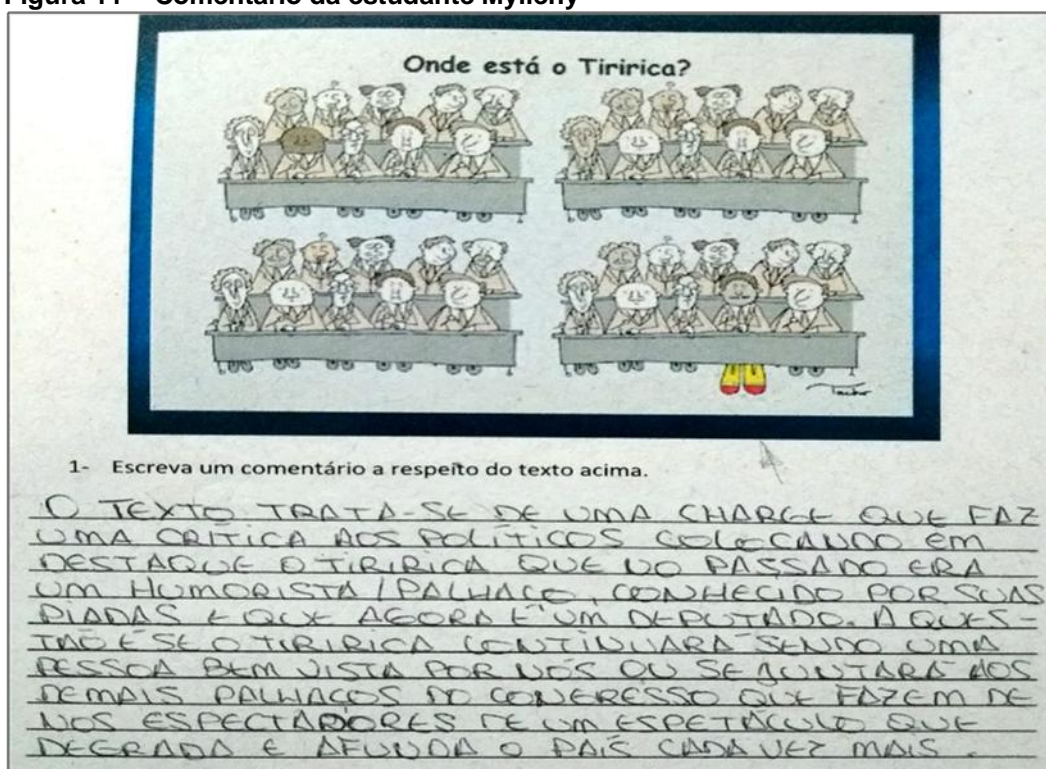 Figura 11 – Comentário da estudante Mylleny
Onde está o Tiririca?
Tacho
1- Escreva um comentário a respeito do texto acima.
O TEXTO TRATA-SE DE UMA CHARGE QUE FAZ
UMA CRITICA AOS POLÍTICOS COLOCANDO EM
DESTAQUE O TIRIRICA QUE NO PASSADO ERA
UM HUMORISTA / PALHAÇO, CONHECIDO POR SUAS
PIADAS E QUE AGORA É UM DEPUTADO. A QUES-
TÃO É SE O TIRIRICA CONTINUARÁ SENDO UMA
PESSOA BEM VISTA POR NÓS OU SE JUNTARÁ AOS
DEMAIS PALHAÇOS DO CONGRESSO QUE FAZEM DE
NOS ESPECTADORES DE UM ESPETÁCULO QUE
DEGRADA E AFUNDA O PAÍS CADA VEZ MAIS.